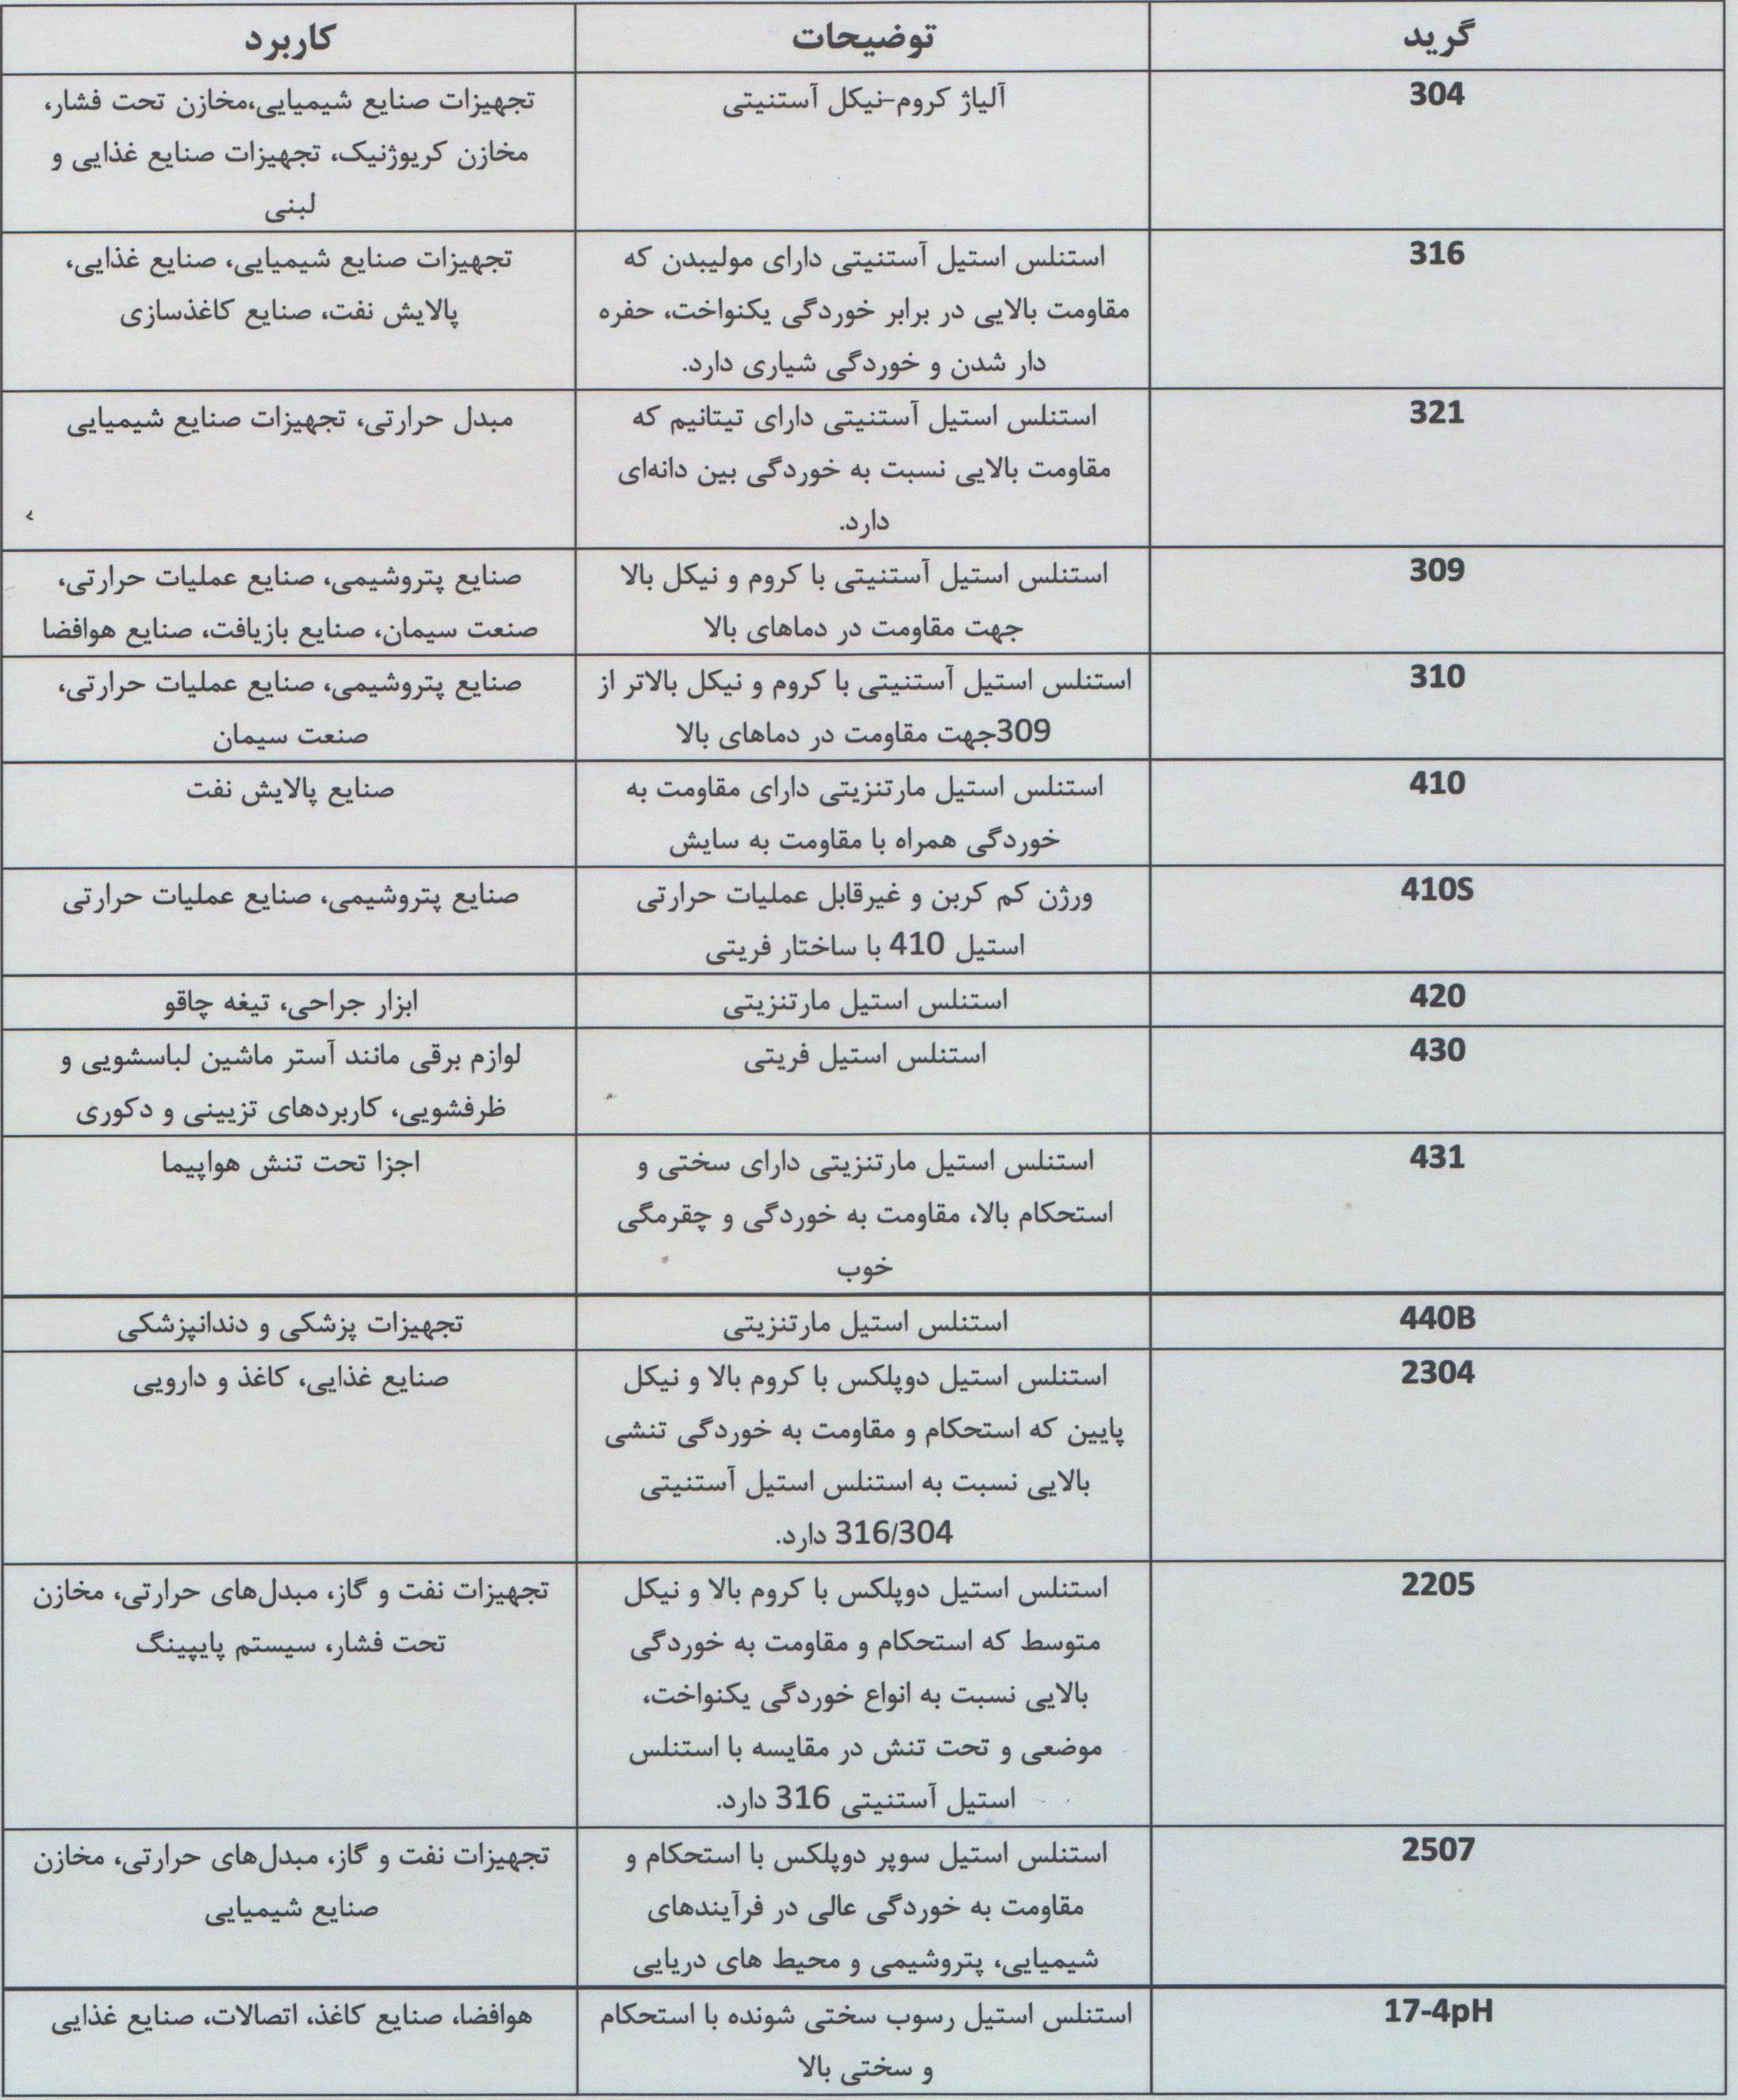 گرید
توضیحات
کاربرد
304
آلیاژ کروم-نیکل آستنیتی
تجهیزات صنایع شیمیایی،مخازن تحت فشار،
مخازن کریوژنیک، تجهیزات صنایع غذایی و
لبنی
316
استنلس استیل آستنیتی دارای مولیبدن که
مقاومت بالایی در برابر خوردگی یکنواخت، حفره
دار شدن و خوردگی شیاری دارد.
تجهیزات صنایع شیمیایی، صنایع غذایی،
پالایش نفت، صنایع کاغذسازی
321
استنلس استیل آستنیتی دارای تیتانیم که
مقاومت بالایی نسبت به خوردگی بین دانه‌ای
دارد.
مبدل حرارتی، تجهیزات صنایع شیمیایی
309
استنلس استیل آستنیتی با کروم و نیکل بالا
جهت مقاومت در دماهای بالا
صنایع پتروشیمی، صنایع عملیات حرارتی،
صنعت سیمان، صنایع بازیافت، صنایع هوافضا
310
استنلس استیل آستنیتی با کروم و نیکل بالاتر از
309جهت مقاومت در دماهای بالا
صنایع پتروشیمی، صنایع عملیات حرارتی،
صنعت سیمان
410
استنلس استیل مارتنزیتی دارای مقاومت به
خوردگی همراه با مقاومت به سایش
صنایع پالایش نفت
410S
ورژن کم کربن و غیرقابل عملیات حرارتی
استیل 410 با ساختار فریتی
صنایع پتروشیمی، صنایع عملیات حرارتی
420
استنلس استیل مارتنزیتی
ابزار جراحی، تیغه چاقو
430
استنلس استیل فریتی
لوازم برقی مانند آستر ماشین لباسشویی و
ظرفشویی، کاربردهای تزیینی و دکوری
431
استنلس استیل مارتنزیتی دارای سختی و
استحکام بالا، مقاومت به خوردگی و چقرمگی
خوب
اجزا تحت تنش هواپیما
440B
استنلس استیل مارتنزیتی
تجهیزات پزشکی و دندانپزشکی
2304
استنلس استیل دوپلکس با کروم بالا و نیکل
پایین که استحکام و مقاومت به خوردگی تنشی
بالایی نسبت به استنلس استیل آستنیتی
316/304 دارد.
صنایع غذایی، کاغذ و دارویی
2205
استنلس استیل دوپلکس با کروم بالا و نیکل
متوسط که استحکام و مقاومت به خوردگی
بالایی نسبت به انواع خوردگی یکنواخت،
موضعی و تحت تنش در مقایسه با استنلس
استیل آستنیتی 316 دارد.
تجهیزات نفت و گاز، مبدل‌های حرارتی، مخازن
تحت فشار، سیستم پایپینگ
2507
استنلس استیل سوپر دوپلکس با استحکام و
مقاومت به خوردگی عالی در فرآیندهای
شیمیایی، پتروشیمی و محیط های دریایی
تجهیزات نفت و گاز، مبدل‌های حرارتی، مخازن
صنایع شیمیایی
17-4pH
استنلس استیل رسوب سختی شونده با استحکام
و سختی بالا
هوافضا، صنایع کاغذ، اتصالات، صنایع غذایی